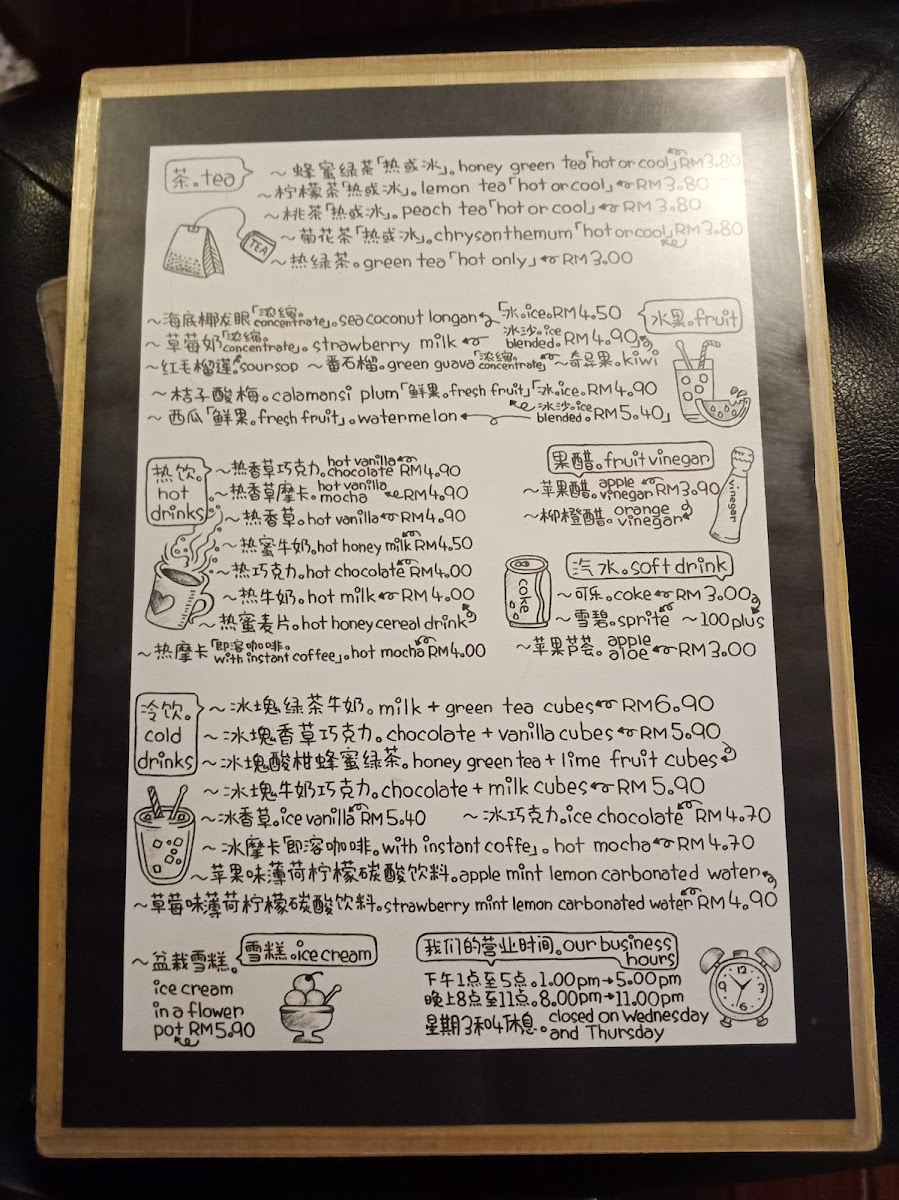 茶。tea
~蜂蜜绿茶「热或冰」。honey green tea「hot or cool」RM3.80
~柠檬茶「热或冰」。lemon tea「hot or cool」RM3.80
~桃茶「热或冰」。peach tea「hot or cool」RM3.80
~菊花茶「热或冰」。chrysanthemum「hot or cool」RM3.80
~热绿茶。green tea「hot only」RM3.00
TEA
水果。fruit
~海底椰龙眼「浓缩。concentrate」。sea coconut longan「冰。ice。RM4.50
~草莓奶「浓缩。concentrate」。strawberry milk 冰沙。ice blended。RM4.90
~红毛榴莲。soursop ~番石榴。green guava「浓缩。concentrate」 ~奇异果。kiwi
~桔子酸梅。calamansi plum「鲜果。fresh fruit」「冰。ice。RM4.90
~西瓜「鲜果。fresh fruit」。watermelon 冰沙。ice blended。RM5.40」
热饮。hot drinks
~热香草巧克力。hot vanilla chocolate RM4.90
~热香草摩卡。hot vanilla mocha RM4.90
~热香草。hot vanilla RM4.90
~热蜜牛奶。hot honey milk RM4.50
~热巧克力。hot chocolate RM4.00
~热牛奶。hot milk RM4.00
~热蜜麦片。hot honey cereal drink
~热摩卡「即溶咖啡。with instant coffee」。hot mocha RM4.00
果醋。fruit vinegar
~苹果醋。apple vinegar RM3.90
~柳橙醋。orange vinegar
vinegar
汽水。soft drink
~可乐。coke RM3.00
~雪碧。sprite ~100 plus
~苹果芦荟。apple aloe RM3.00
coke
冷饮。cold drinks
~冰塊绿茶牛奶。milk + green tea cubes RM6.90
~冰塊香草巧克力。chocolate + vanilla cubes RM5.90
~冰塊酸柑蜂蜜绿茶。honey green tea + lime fruit cubes
~冰塊牛奶巧克力。chocolate + milk cubes RM5.90
~冰香草。ice vanilla RM5.40 ~冰巧克力。ice chocolate RM4.70
~冰摩卡「即溶咖啡。with instant coffe」。hot mocha RM4.70
~苹果味薄荷柠檬碳酸饮料。apple mint lemon carbonated water
~草莓味薄荷柠檬碳酸饮料。strawberry mint lemon carbonated water RM4.90
雪糕。ice cream
~盆栽雪糕。
ice cream
in a flower
pot RM5.90
我们的营业时间。our business hours
下午1点至5点。1.00pm→5.00pm
晚上8点至11点。8.00pm→11.00pm
星期3和4休息。closed on Wednesday and Thursday